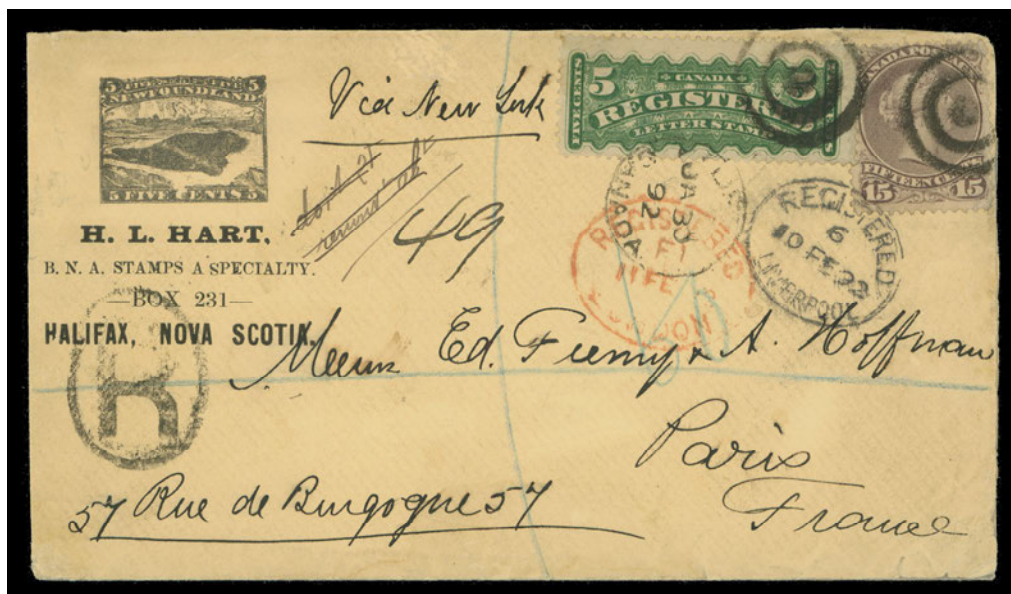 5 5
NEWFOUNDLAND
5 FIVE CENTS 5
H. L. HART,
B. N. A. STAMPS A SPECIALTY.
—BOX 231—
HALIFAX, NOVA SCOTIA.
R
Via New York
49
CANADA
5 REGISTERED
LETTER STAMP
FIVE CENTS
CANADA POSTAGE
15 FIFTEEN CENTS 15
CANADA
JA 30
92
REGISTERED
11 FE
LONDON
REGISTERED
6
10 FE 92
LIVERPOOL
Messrs Ed. Fremy & A. Hoffman
Paris
France
57 Rue de Burgogne 57